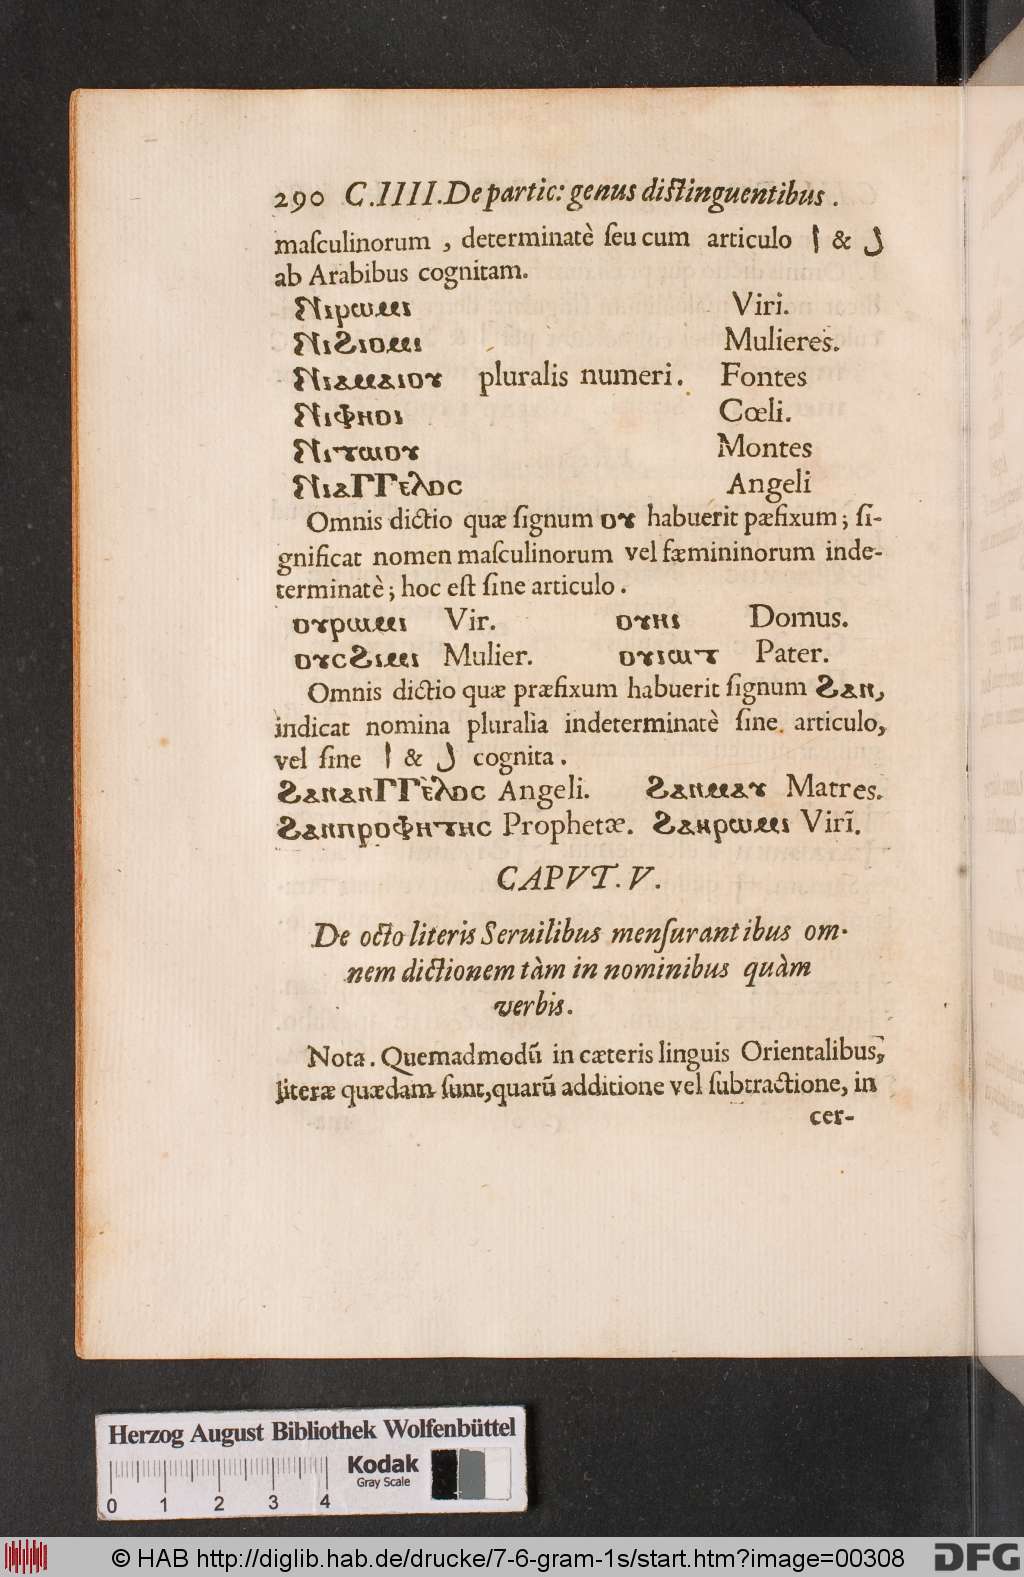 290 C.IIII. De partic: genus distinguentibus.
masculinorum, determinatè seu cum articulo ا & ل
ab Arabibus cognitam.
Ⲛⲓⲣⲱⲙⲓ Viri.
Ⲛⲓϩⲓⲟⲙⲓ Mulieres.
Ⲛⲓⲁⲙⲁⲓⲟⲩ pluralis numeri. Fontes
Ⲛⲓⲫⲏⲟⲓ Cœli.
Ⲛⲓⲧⲱⲟⲩ Montes
ⲚⲓⲁⲄⲄⲉⲗⲟⲥ Angeli
Omnis dictio quæ signum ⲟⲩ habuerit pæfixum; si-
gnificat nomen masculinorum vel fæmininorum inde-
terminatè; hoc est sine articulo.
ⲟⲩⲣⲱⲙⲓ Vir. ⲟⲩⲏⲓ Domus.
ⲟⲩⲥϩⲓⲙⲓ Mulier. ⲟⲩⲓⲱⲧ Pater.
Omnis dictio quæ præfixum habuerit signum ϩⲁⲛ,
indicat nomina pluralia indeterminatè sine articulo,
vel sine ا & ل cognita.
ϩⲁⲛⲁⲛⲄⲄⲉ̀ⲗⲟⲥ Angeli. ϩⲁⲛⲙⲁⲩ Matres.
ϩⲁⲛⲡⲣⲟⲫⲏⲧⲏⲥ Prophetæ. ϩⲁⲛⲣⲱⲙⲓ Viri.
CAPVT. V.
De octo literis Seruilibus mensurantibus om-
nem dictionem tàm in nominibus quàm
verbis.
Nota. Quemadmodũ in cæteris linguis Orientalibus,
literæ quædam sunt, quarũ additione vel subtractione, in
cer-
Herzog August Bibliothek Wolfenbüttel
Kodak
Gray Scale
0 1 2 3 4
© HAB http://diglib.hab.de/drucke/7-6-gram-1s/start.htm?image=00308
DFG